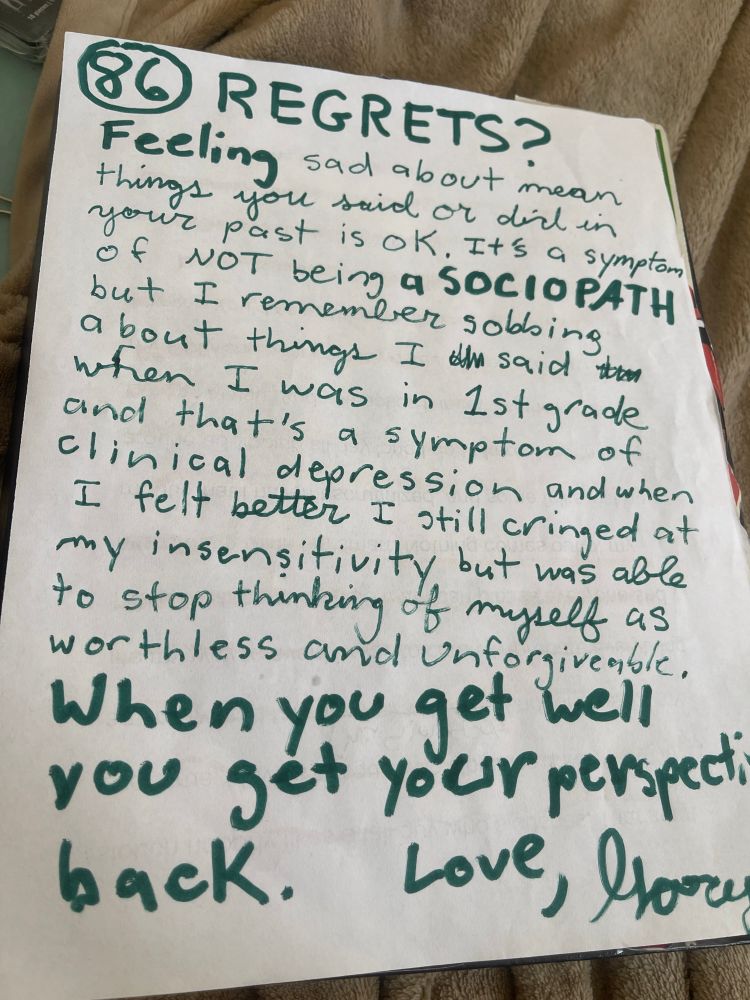 86 REGRETS?
Feeling sad about mean
things you said or did in
your past is OK. It's a symptom
of NOT being a SOCIOPATH
but I remember sobbing
about things I said
when I was in 1st grade
and that's a symptom of
clinical depression and when
I felt better I still cringed at
my insensitivity but was able
to stop thinking of myself as
worthless and unforgiveable.
When you get well
you get your perspecti
back. Love,